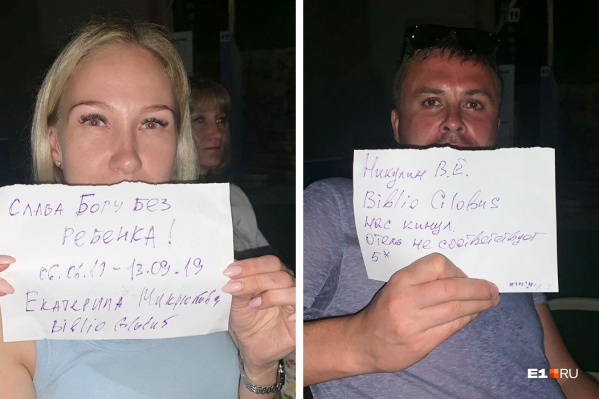 Слава Богу без
ребенка!
06.06.19 - 13.09.19
Екатерина
Biblio Globus
Никулин В.Е.
Biblio Globus
нас кинул.
Отель не соответствует
5*
E1 RU